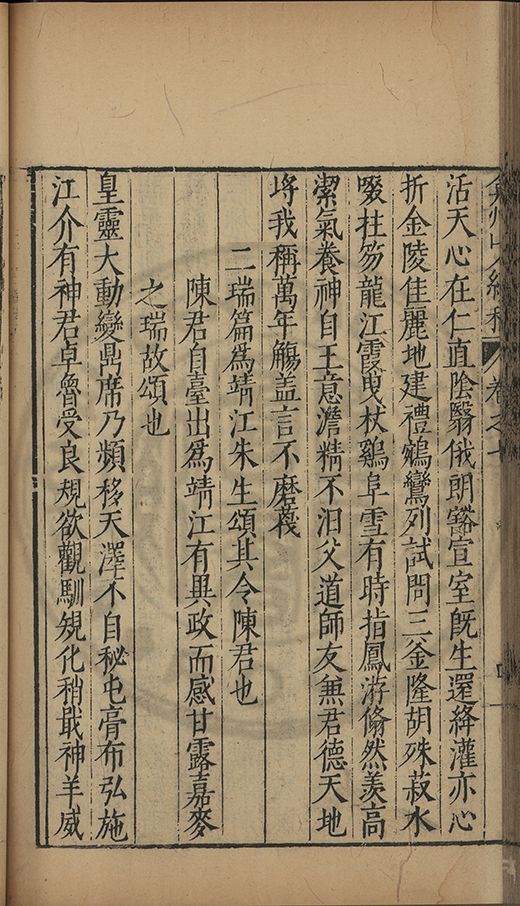 弇州山人續稿 卷之十
活天心在仁直陰翳俄朗豁宣室旣生還絳灌亦心
折金陵佳麗地建禮鵷鸞列試問三釜隆胡殊菽水
啜拄笏龍江霞曳杖鷄阜雪有時指鳳游翛然羨高
潔氣養神自王意澹精不汨父道師友無君德天地
埒我稱萬年觴盖言不磨蔑
二瑞篇爲靖江朱生頌其令陳君也
陳君自臺出爲靖江有異政而感甘露嘉麥
之瑞故頌也
皇靈大動變鼎席乃頻移天澤不自秘屯膏布弘施
江介有神君卓魯受良規欲觀馴雉化稍戢神羊威